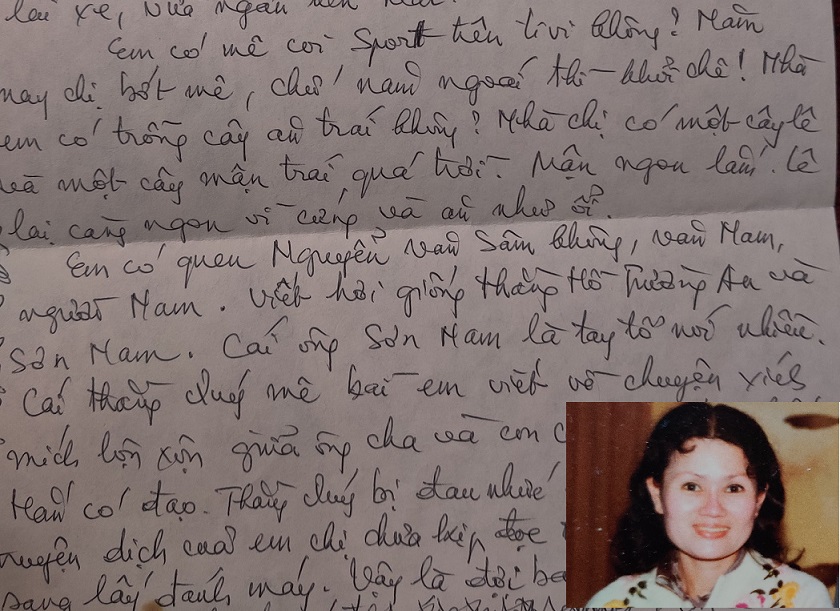 lái xe, vừa ngắn
Em có mê coi Sport trên tivi không? Năm
nay chị bớt mê, chứ năm ngoái thì khỏi chê! Nhà
em có trồng cây ăn trái không? Nhà chị có một cây lê
và một cây mận trái quá trời. Mận ngon lắm. Lê
lại càng ngon vì cứng và ăn như ổi.
Em có quen Nguyễn Văn Sâm không, văn Nam,
người Nam. Viết hơi giống thằng Hồ Trường An và
Sơn Nam. Cái ông Sơn Nam là tay tổ nói nhiều.
Cái thằng mê bài em viết về chuyện xích
mích lộn xộn giữa ông cha và con c
Hắn có đạo. Thằng bị đau nhức
truyện dịch của em chị chưa kịp đọc
sang lấy đánh máy. Vậy là đợi